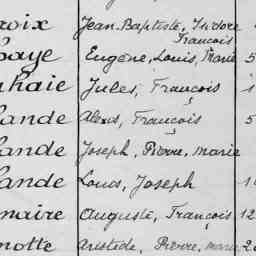 roix Jean. Baptiste, Isidore
François
baye Eugène, Louis, Marie 5
uhaie Jules, François 1
lande Alexis, François 5
lande Joseph, Pierre, marie
lande Louis, Joseph 1
maire Auguste, François 12
motte Aristide, Pierre, marie 2